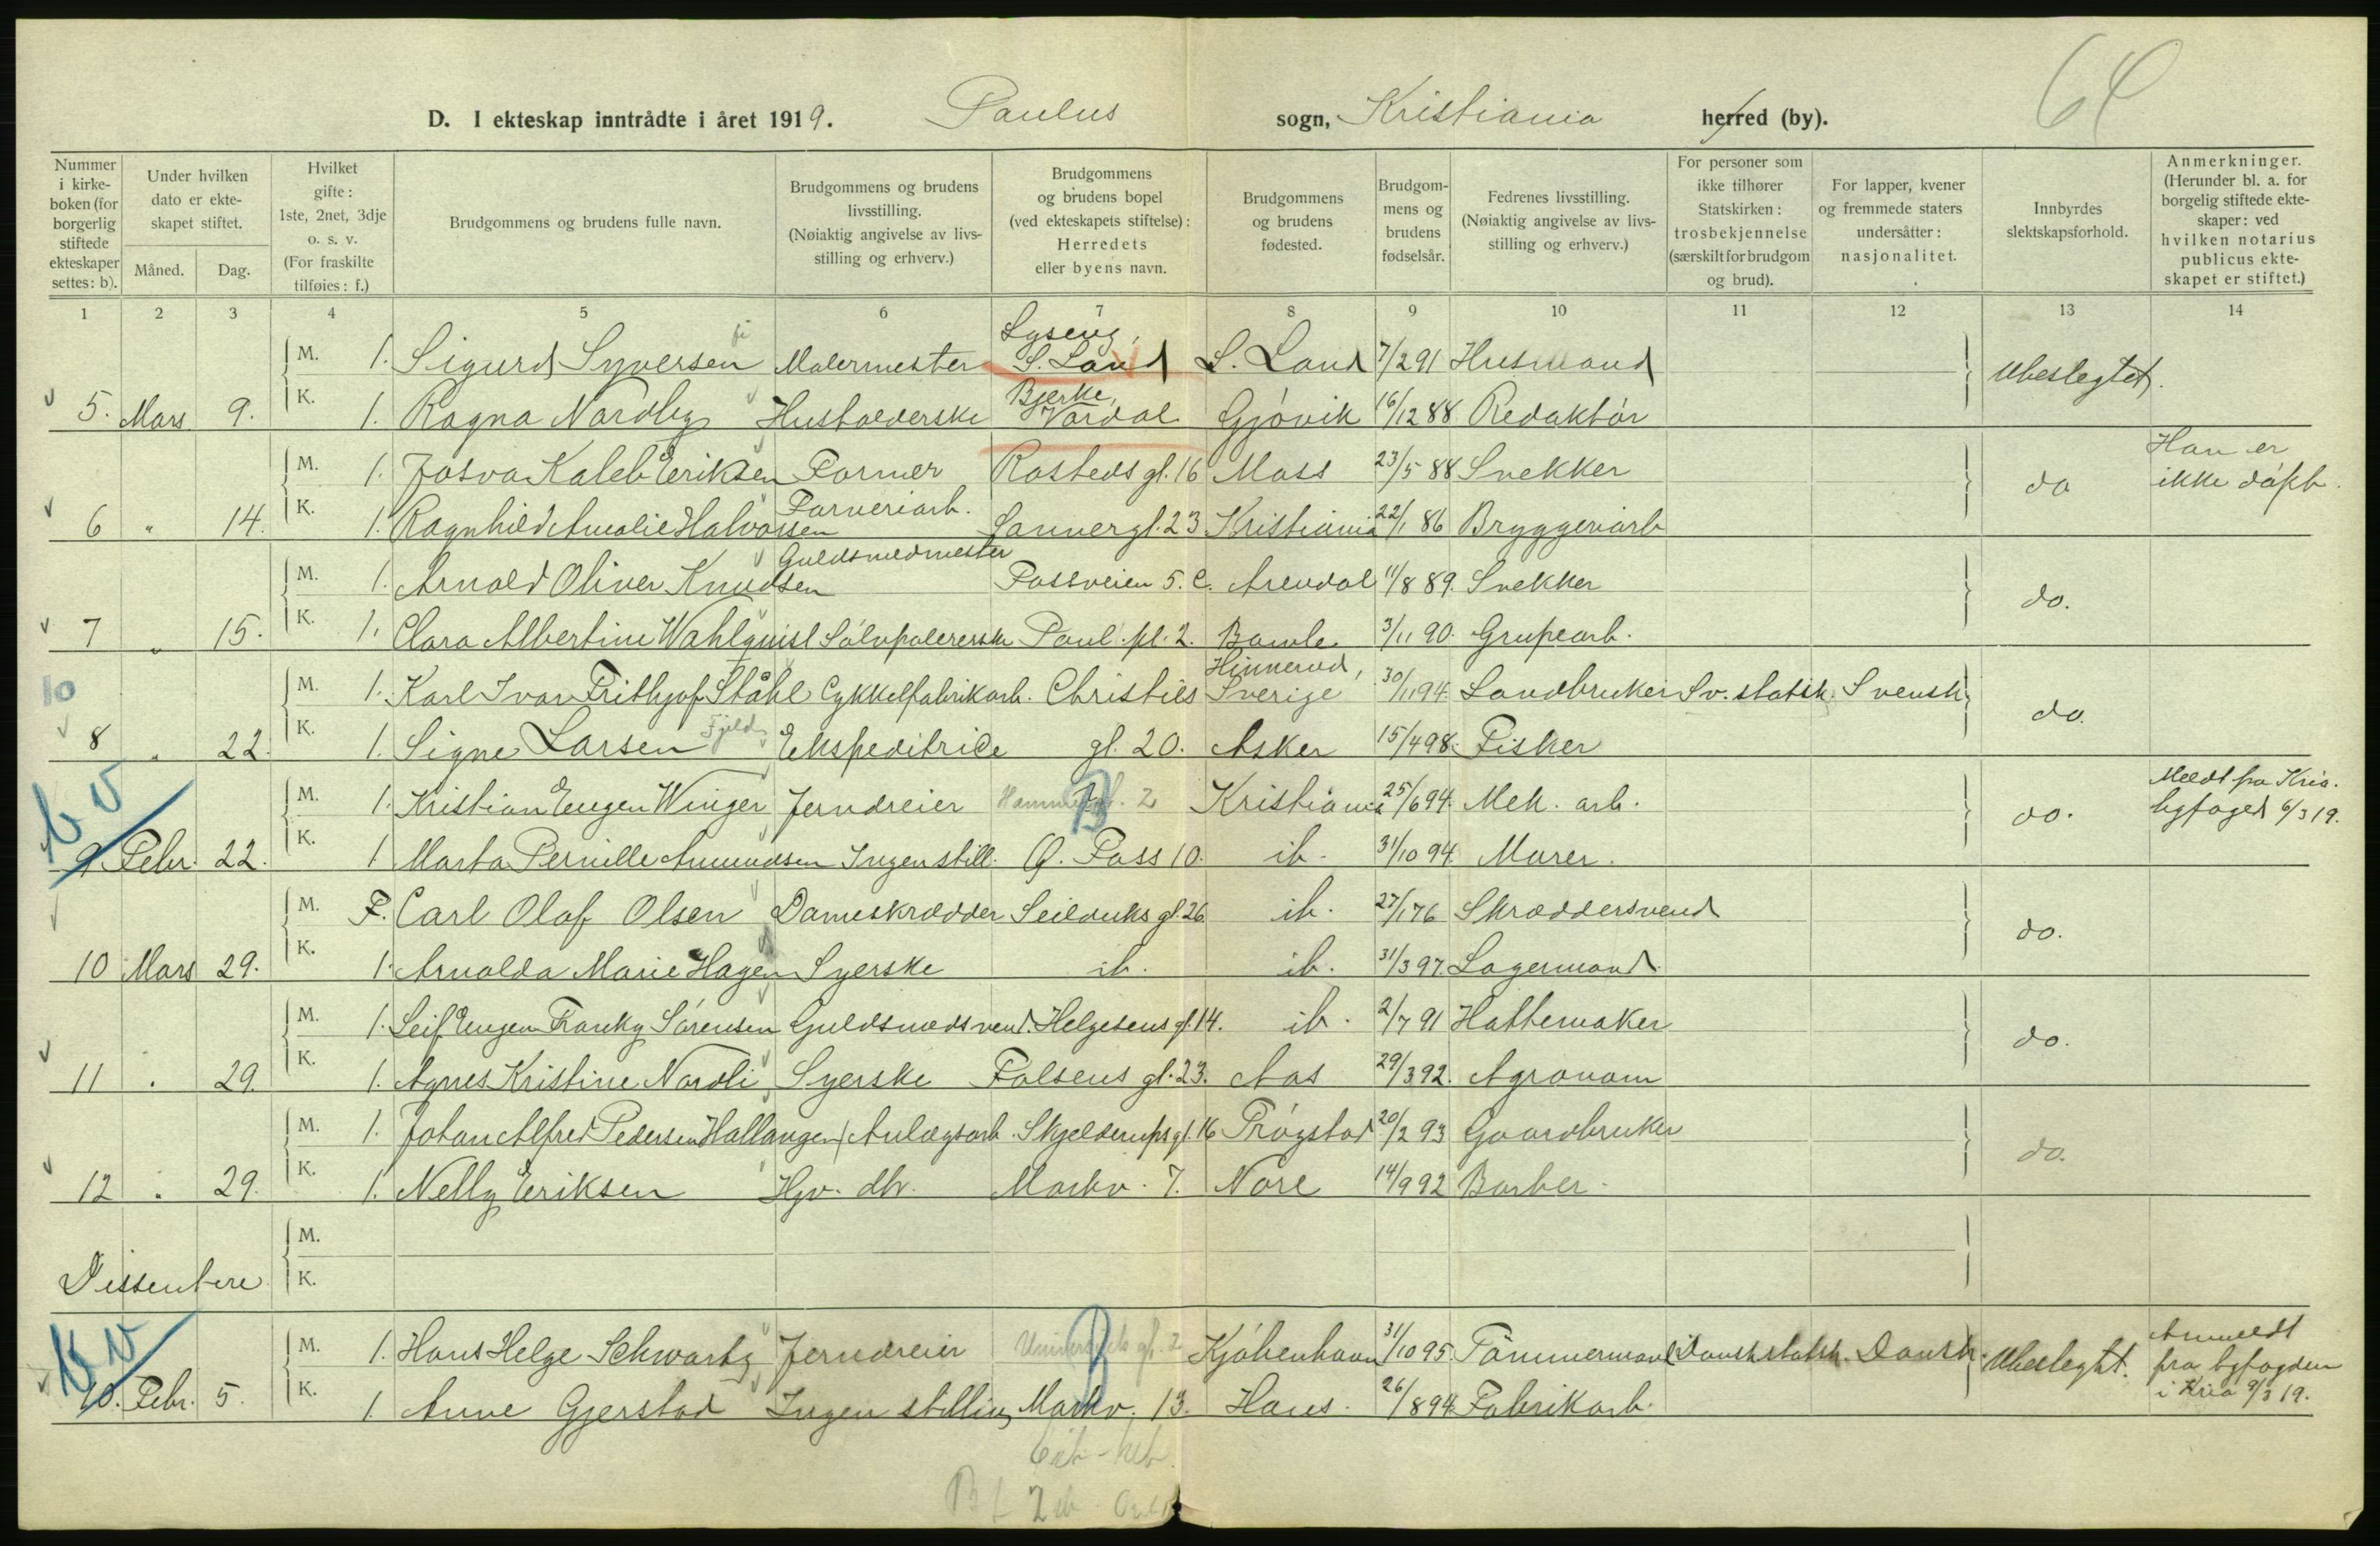 64
D. I ekteskap inntrådte i året 1919. Paulus sogn, Kristiania herred (by).
Nummer i kirkeboken (for borgerlig stiftede ekteskaper settes: b).
Under hvilken dato er ekteskapet stiftet.
Måned. Dag.
Hvilket gifte: 1ste, 2net, 3dje o. s. v. (For fraskilte tilføies: f.)
Brudgommens og brudens fulle navn.
Brudgommens og brudens livsstilling. (Nøiaktig angivelse av livsstilling og erhverv.)
Brudgommens og brudens bopel (ved ekteskapets stiftelse): Herredets eller byens navn.
Brudgommens og brudens fødested.
Brudgommens og brudens fødselsår.
Fedrenes livsstilling. (Nøiaktig angivelse av livsstilling og erhverv.)
For personer som ikke tilhører Statskirken: trosbekjennelse (særskilt for brudgom og brud).
For lapper, kvener og fremmede staters undersåtter: nasjonalitet.
Innbyrdes slektskapsforhold.
Anmerkninger. (Herunder bl. a. for borgelig stiftede ekteskaper: ved hvilken notarius publicus ekteskapet er stiftet.)
1 2 3 4 5 6 7 8 9 10 11 12 13 14
M. 1. Sigurd Syversen Malermester Lyseng, S. Land S. Land 7/2 91 Husmand Ubeslegtet.
5. Mars 9. K. 1. Ragna Nordby Husholderske Bjerke, Vardal Gjøvik 16/12 88 Redaktør
M. 1. Josva Kaleb Eriksen Former Rosteds gt. 16 Moss 23/5 88 Snekker do Han er ikke døpt.
6 " 14. K. 1. Ragnhild Amalie Halvorsen Farveriarb. Sannergt. 23 Kristiania 22/1 86 Bryggeriarb
M. 1. Arnold Oliver Knudsen Guldsmedmester Fossveien 5. c. Arendal 11/8 89. Snekker do.
7 " 15. K. 1. Clara Albertine Wahlquist Sølvpolererske Paul. pl. 2. Bamle 3/11 90. Grupearb.
10
M. 1. Karl Ivar Frithjof Ståhl Cykkelfabrikarb. Christies Hinnerud, Sverige 30/1 94. Landbruker Sv. statsk. Svensk do.
8 " 22. K. 1. Signe Larsen Fjeld Ekspeditrice gt. 20. Asker 15/4 98. Fisker
M. 1. Kristian Eugen Winger Jerndreier B Kristiania 25/6 94. Mek. arb. do. Meldt fra Kria. byfoged 6/3 19.
9 Febr. 22. K. 1 Marta Pernille Amundsen Ingen still. Ø. Foss 10. ib. 31/10 94. Murer.
M. F. Carl Olaf Olsen Dameskrædder Seilduks gt. 26 ib. 27/1 76 Skræddersvend do.
10 Mars 29. K. 1. Arnolda Marie Hagen Syerske ib. ib. 31/3 97. Lagermand.
M. 1. Leif Eugen Franky Sørensen Guldsmedsvend. Helgesens gt. 14. ib. 2/7 91 Hattemaker do.
11 " 29. K. 1. Agnes Kristine Nordli Syerske Falsens gt. 23. Aas 29/3 92. Agronom
M. 1. Johan Alfred Pedersen Hallangen Anlægsarb. Skjelderups gt. 16 Trøgstad 20/2 93 Gaardbruker do.
12 " 29. K. 1. Nelly Eriksen Hjv. dtr. Markv. 7. Nore 14/9 92 Barber.
M.
Dissentere K.
M. 1. Hans Helge Schwartz Jerndreier B Kjøbenhavn 31/10 95. Tømmermand Dansk statsk. Dansk. Ubeslegtet. Anmeldt fra byfogden i Kria 9/3 19.
10. Febr. 5. K. 1. Anne Gjerstad Ingen stilling Markv. 13. Haus. 26/8 94. Fabrikarb.